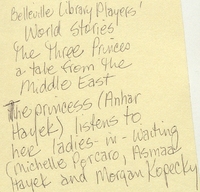 Belleville Library Players'
World Stories
The Three Princes
a tale from the
Middle East
The princess (Anhar
Hayek) listens to
her ladies-in-waiting
(Michelle Porcaro, Asmaa
Hayek and Morgan Kopecky